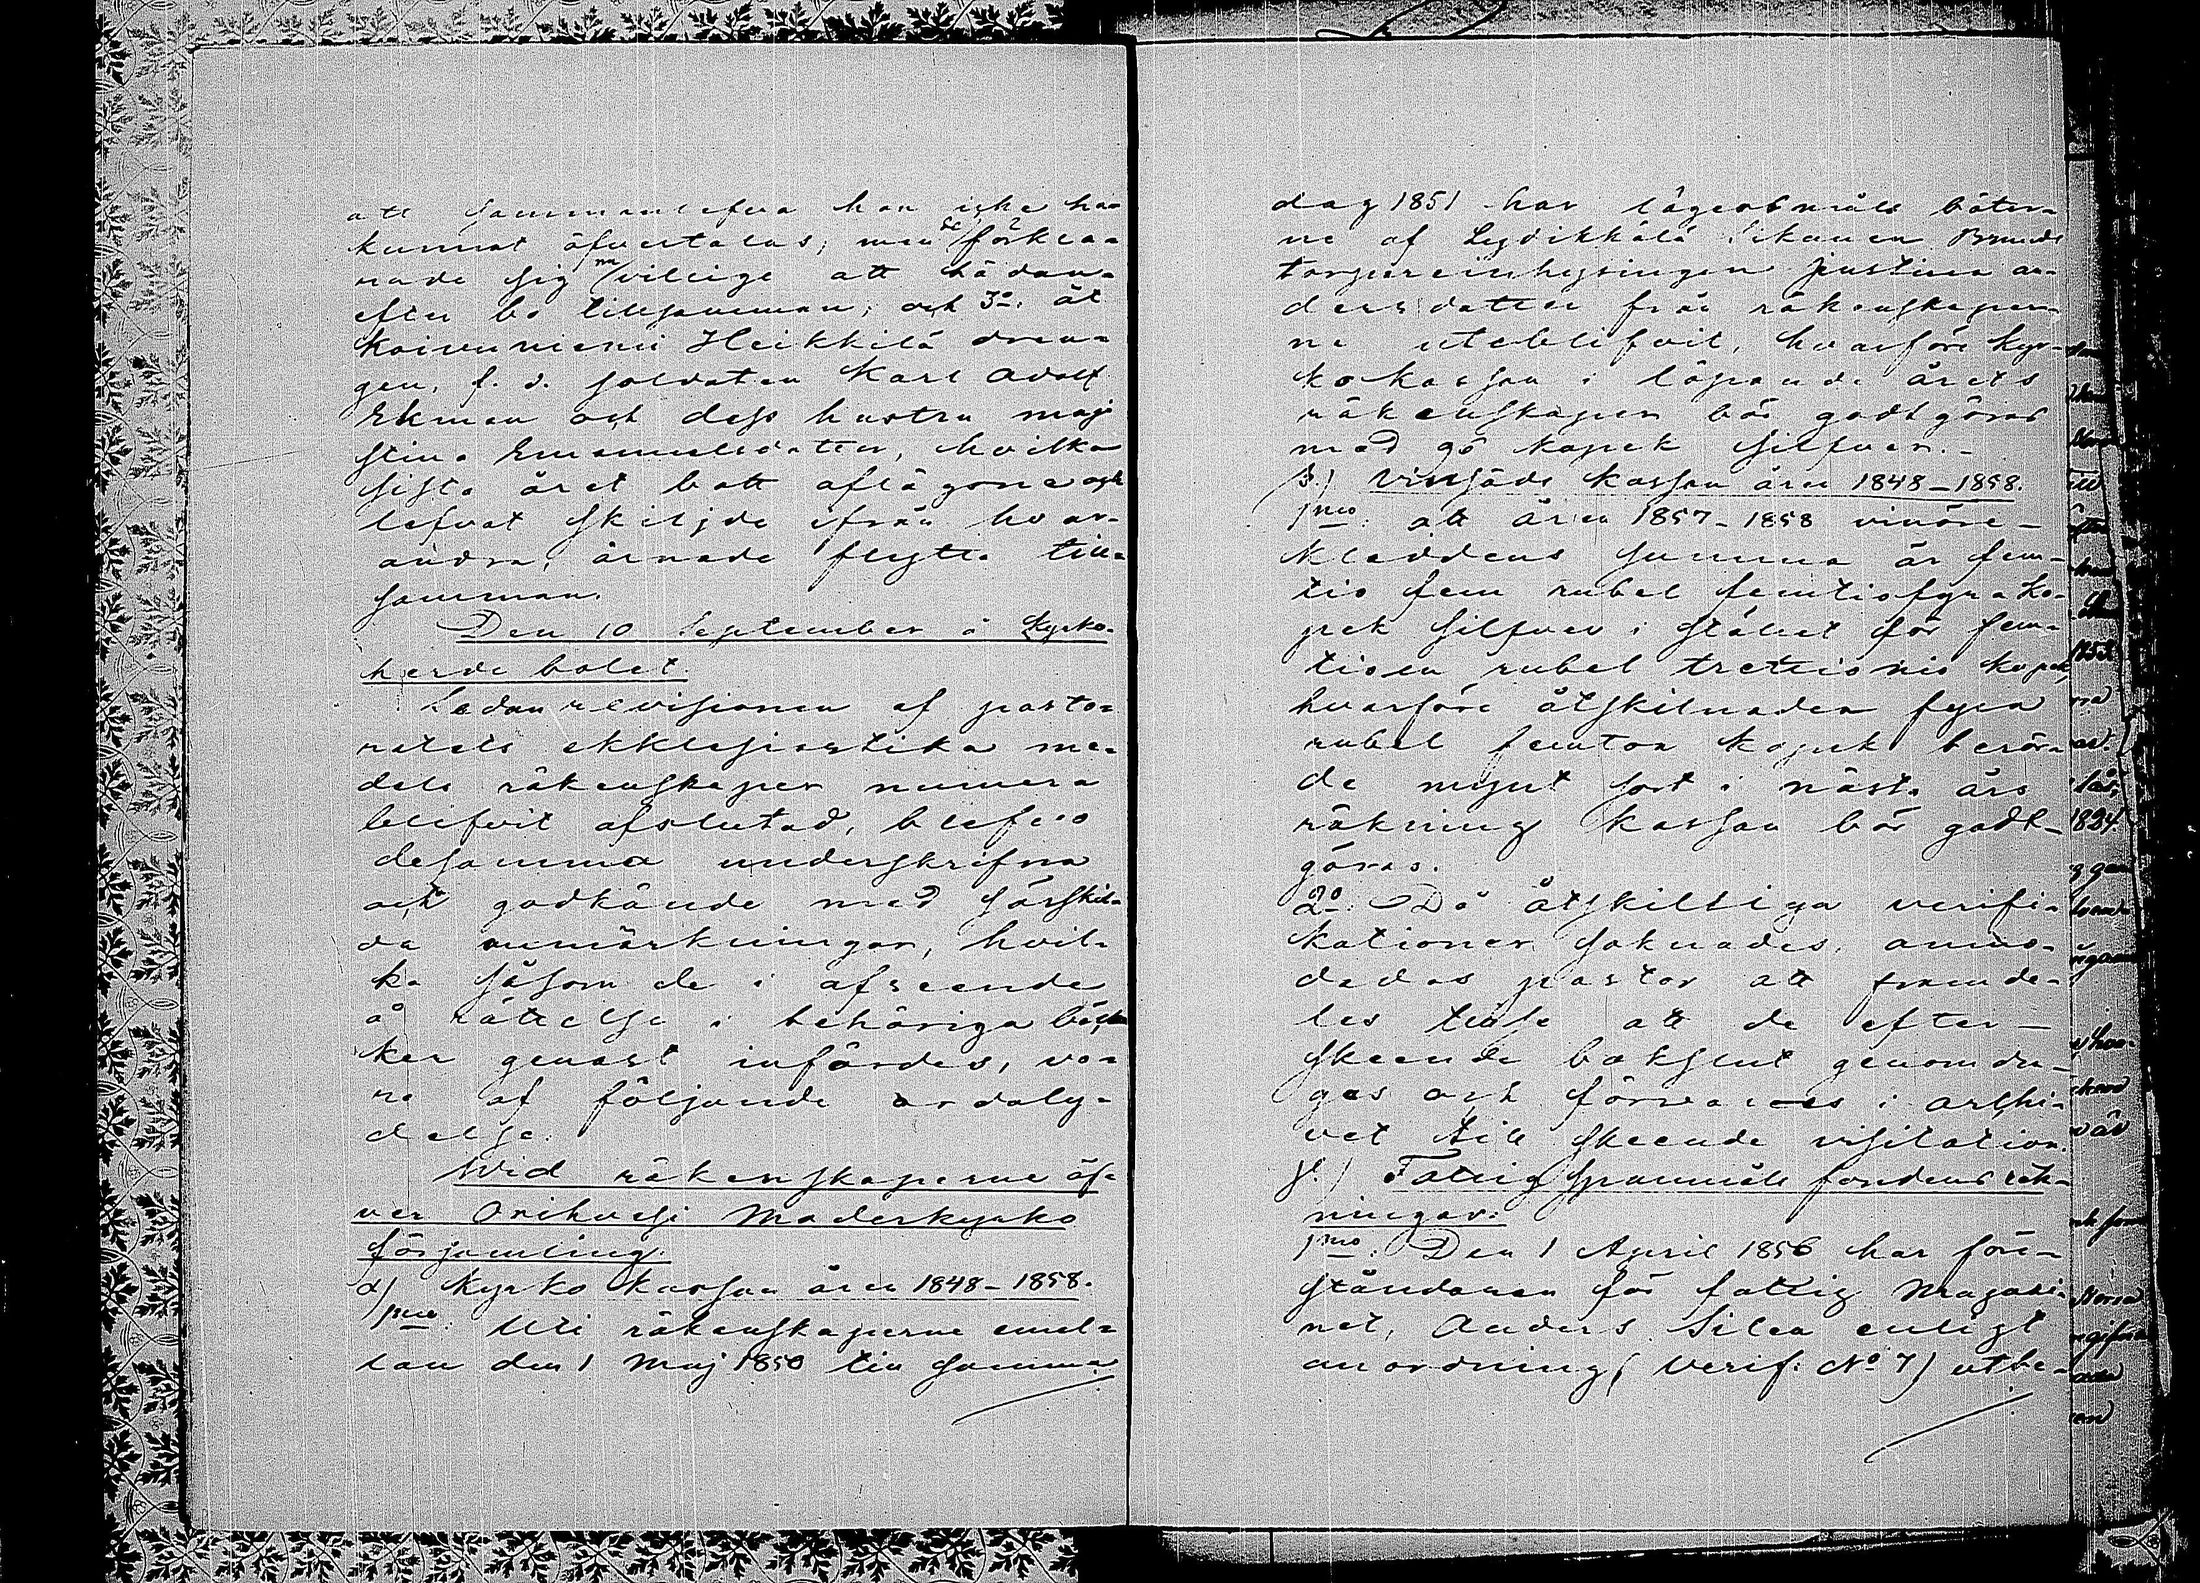 att sammanlefva han icke ha-
kunnat öfvertalas, men de förkla-
rade sig nu villige att hädan-
efter bo tillsamman; och 3o. at
Koivuniemi Heikkilä dren-
gen, f. d. soldaten Karl Adolf
Ekman och dess hustru Maja
Stina Emanuelsdotter, hvilka
sista året bott aflägsna och
lefvat skiljde ifrån hvar-
andra, ärnade flytta till-
samman.
Den 10 September å Kyrko-
herde bolet.
Sedan revisionen af pasto-
ratets ekklesiastika me-
dels räkenskaper numera
blifvit afslutad, blefvo
desamma underskrifna
och godkände med särskil-
da anmärkningar, hvil-
ka såsom de i afseende
å rättelse i behöriga böc-
ker genast infördes, vo-
ro af följande ordaly-
delse.
Wid räkenskaperne öf-
ver Orihvesi Moderkyrko
församling.
α) Kyrko Kassan åren 1848-1858.
1mo. Uti räkenskaperne emel-
lan den 1 Maj 1850 till samma
dag 1851 har lägersmåls böter-
ne af Sikanen
torpareinhysingen Justina An-
dersdotter från räkenskaper-
ne uteblifvit, hvarföre Kyr-
ko Kassan i löpande årets
räkenskaper bör godtgöras
med 90 kopek silfver.-
β.) Vinsäds Kassan åren 1848-1858.
1mo. att åren 1857-1858
summa är fem-
tio fem rubel femtiofyra ko-
pek silfver i stället för fem-
tioen rubel trettionio kopek,
hvarföre åtskilnaden fyra
rubel femton Kopek berör-
de mynt sort i nästa års
räkning Kassan bör godt-
göras.
2o. Då åtskilliga verifi-
kationer saknades, anmo-
dades pastor att framde-
les tillse att de efter-
skeende bokslut genomdra-
gas och förvaras i archi-
vet till skeende visitation.
γ.) Fattig Spannmåls fondens räk-
ningar.
1mo. Den 1 April 1856 har före-
ståndaren för fattig Magasi-
net, Anders Silen enligt
anordning (Verif: No 7) utbe-